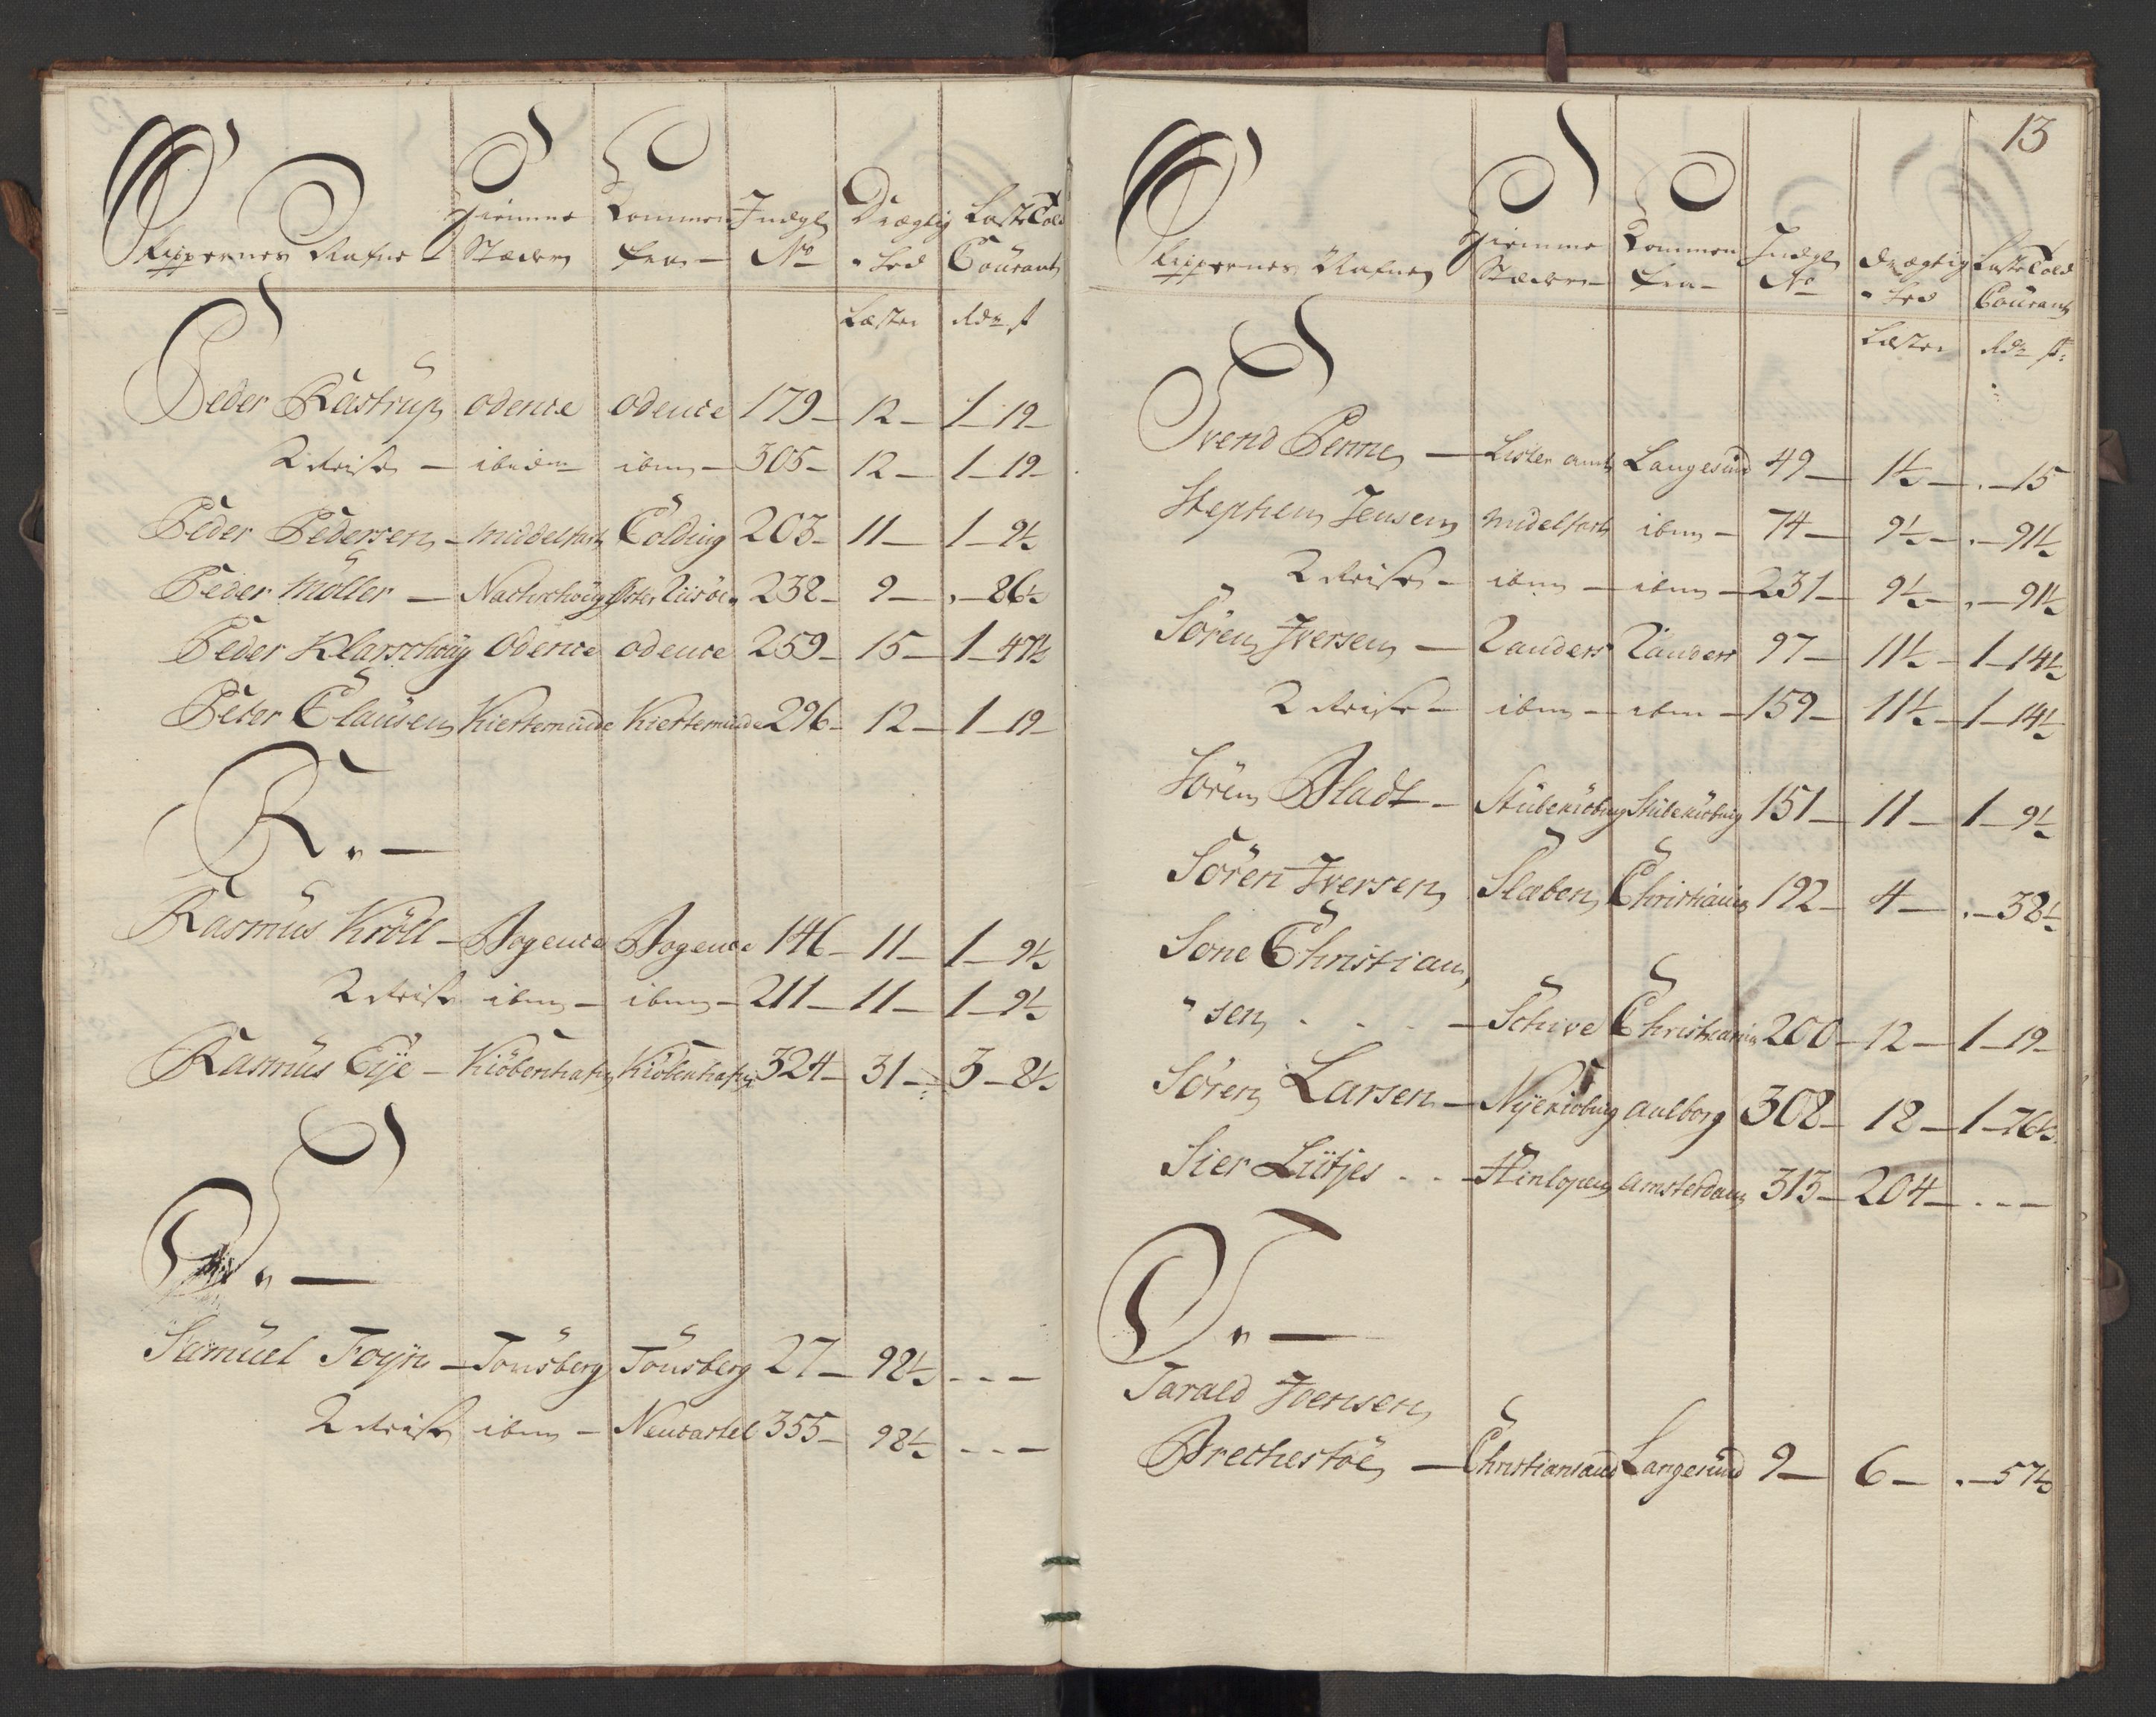 Skippernes Nafne Hiemme Kommen Indgl Drægtig Læste Told
Stæder fra No hed Courant
Læster Rdr s
Peder Rastrup odence odence 179 12 1 19
2 Reise ibidem ibm 305 12 1 19
Peder Pedersen Middelfart Colding 203 11 1 9½
Peder Möller Nachschöug 238 9 " 86½
Peder Klarschöug Odence odence 259 15 1 47½
Peter Clausen Kiertemünde Kiertemünde 296 12 1 19
R. "
Rasmüs Kröll Bogence Bogence 146 11 1 9½
2 Reise ibm ibm 211 11 1 9½
Rasmüs Eije Kiöbenhafn Kiöbenhafn 324 31 3 8½
S "
Samüel Foyn Tönsberg Tönsberg 27 98½ - - -
2 Reise ibm Neucastel 355 98½ - - -
13
Skippernes Nafne Hiemme Kommen Indgl Drægtig Læste Told
Stæder fra No hed Courant
Læster Rdr s:
Svend Penne Lister amt Langesund 49 1½ " 15
Stephen Jensen Midelfart ibm 74 9½ " 91½
2 Reise ibm ibm 231 9½ " 91½
Sören Iversen Randers Randers 97 11½ 1 14½
2 Reise ibm ibm 159 11½ 1 14½
Sören Bladt Stübekiöbing Stübekiöbing 151 11 1 9½
Sören Iversen Slæben Christiania 192 4 " 38½
Sone Christian
" sen . . . Schive Christiania 200 12 1 19
Sören Larsen Nyekiöbing aalborg 308 18 1 76½
Sier Lütjes . . Hinlopen amsterdam 313 204 - - -
T "
Tarald Joensen
Brechestöe Christiansand Langesünd 9 6 " 57½